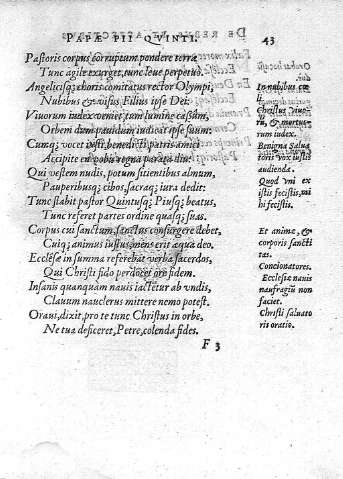 PAPÆ PII QVINTI. 43
Pastoris corpus corruptum pondere terræ
Tunc agile exurget, tunc leue perpetuò.
Angelicisq; choris comitatus rector Olympi,
Nubibus & vistus Filius ipse Dei:
Viuorum iudex veniet, tum lumine cassûm,
Orbem dum pauidum iudicat ipse suum:
Cumq; vocet iustos, benedicti patris amici
Accipite en vobis regna parata diu:
Qui vestem nudis, potum sitientibus almum,
Pauperibusq; cibos, sacraq; iura dedit:
Tunc stabit pastor Quintusq; Piusq; beatus,
Tunc referet partes ordine quasq; suas.
Corpus cui sanctum, sanctus consurgere debet,
Cuiq; animus iustus, mens erit æqua deo.
Ecclesiæ in summa referebat verba sacerdos,
Qui Christi fido perdocet ore fidem.
Insanis quanquam nauis iactetur ab vndis,
Clauum nauclerus mittere nemo potest.
Oraui, dixit, pro te tunc Christus in orbe,
Ne tua desiceret, Petre, colenda fides.
In nubibus cœ
li.
Christus viuo-
rū, & mortuo-
rum iudex.
Benigna Salua
toris vox iustis
audienda.
Quod vni ex
istis fecistis, mi
hi fecistis.
Et animæ, &
corporis sancti
tas.
Concionatores.
Ecclesiæ nauis
naufragiū non
faciet.
Christi saluato
ris oratio.
F 3